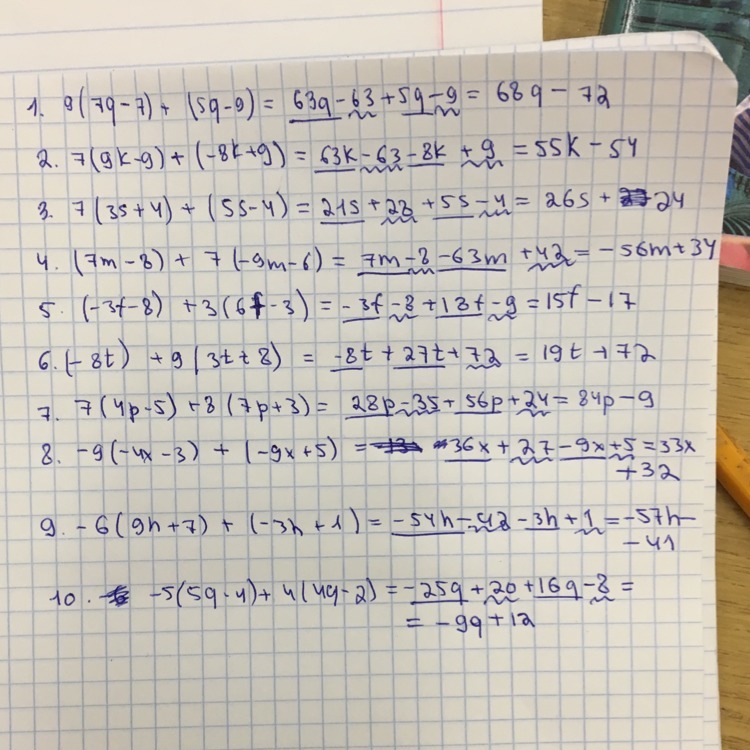 1. 9(7q-7) + (5q-9) = 63q-63+5q-9 = 68q-72
2. 7(9k-9) + (-8k+9) = 63k-63-8k+9 = 55k-54
3. 7(3s+4) + (5s-4) = 21s+28+5s-4 = 26s+24
4. (7m-8) + 7(-9m-6) = 7m-8-63m+42 = -56m+34
5. (-3f-8) +3(6f-3) = -3f-8+18f-9 = 15f-17
6. (-8t) +9(3t+8) = -8t+27t+72 = 19t+72
7. 7(4p-5) +8(7p+3) = 28p-35+56p+24 = 84p-9
8. -9(-4x-3) + (-9x+5) = 36x+27-9x+5 = 33x
+32
9. -6(9h+7) + (-3h+1) = -54h-42-3h+1 = -57h-
-41
10. -5(5q-4) + 4(4q-2) = -25q+20+16q-8 =
= -9q+12